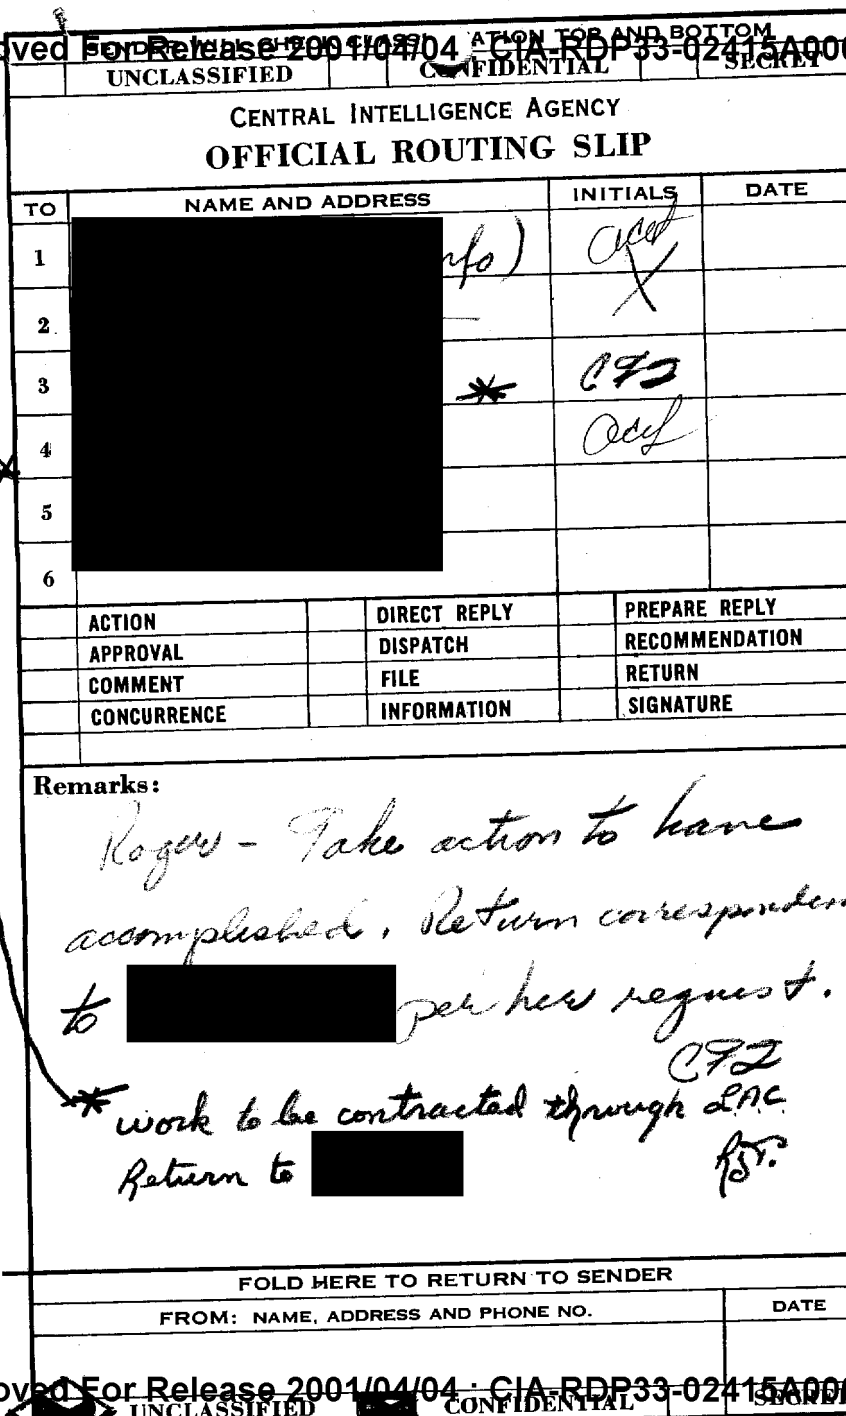 SENDER WILL CHECK CLASSIFICATION TOP AND BOTTOM
oved For Release 2001/04/04 : CIA-RDP33-02415A000
UNCLASSIFIED CONFIDENTIAL SECRET
CENTRAL INTELLIGENCE AGENCY
OFFICIAL ROUTING SLIP
TO NAME AND ADDRESS INITIALS DATE
1 nfo)
2
3 * CFQ
4
5
6
ACTION DIRECT REPLY PREPARE REPLY
APPROVAL DISPATCH RECOMMENDATION
COMMENT FILE RETURN
CONCURRENCE INFORMATION SIGNATURE
Remarks:
Roger - Take action to have
accomplished. Return corresponden
to per her request.
* work to be contracted through LAC
Return to
FOLD HERE TO RETURN TO SENDER
FROM: NAME, ADDRESS AND PHONE NO. DATE
oved For Release 2001/04/04 : CIA-RDP33-02415A000
UNCLASSIFIED CONFIDENTIAL SECRET